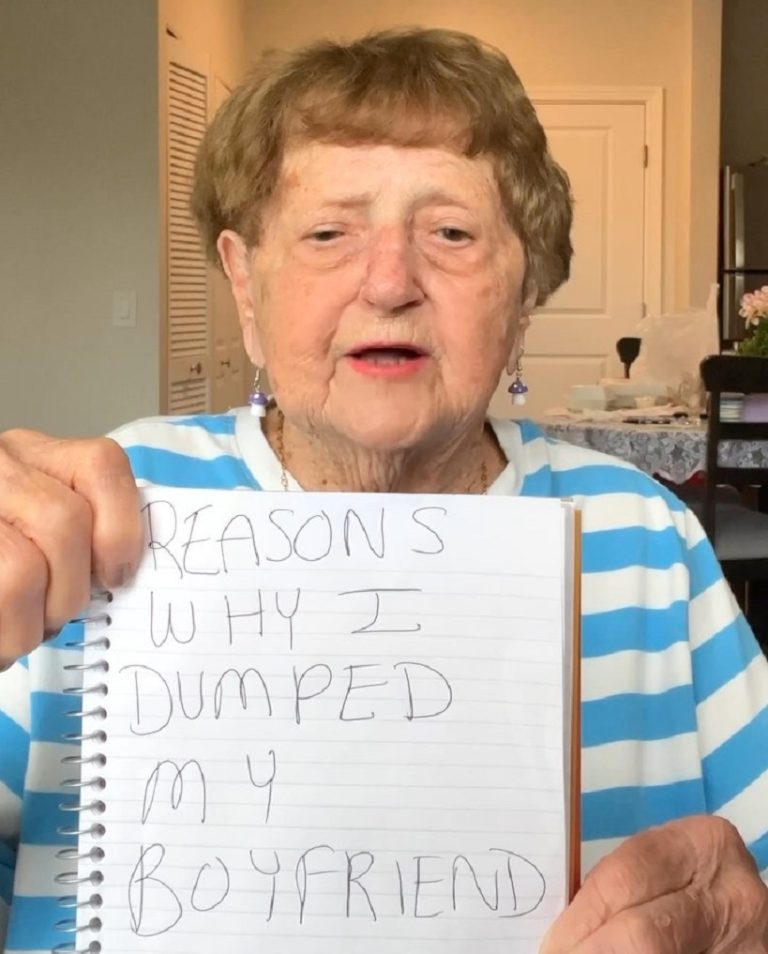 REASONS
WHY I
DUMPED
MY
BOYFRIEND